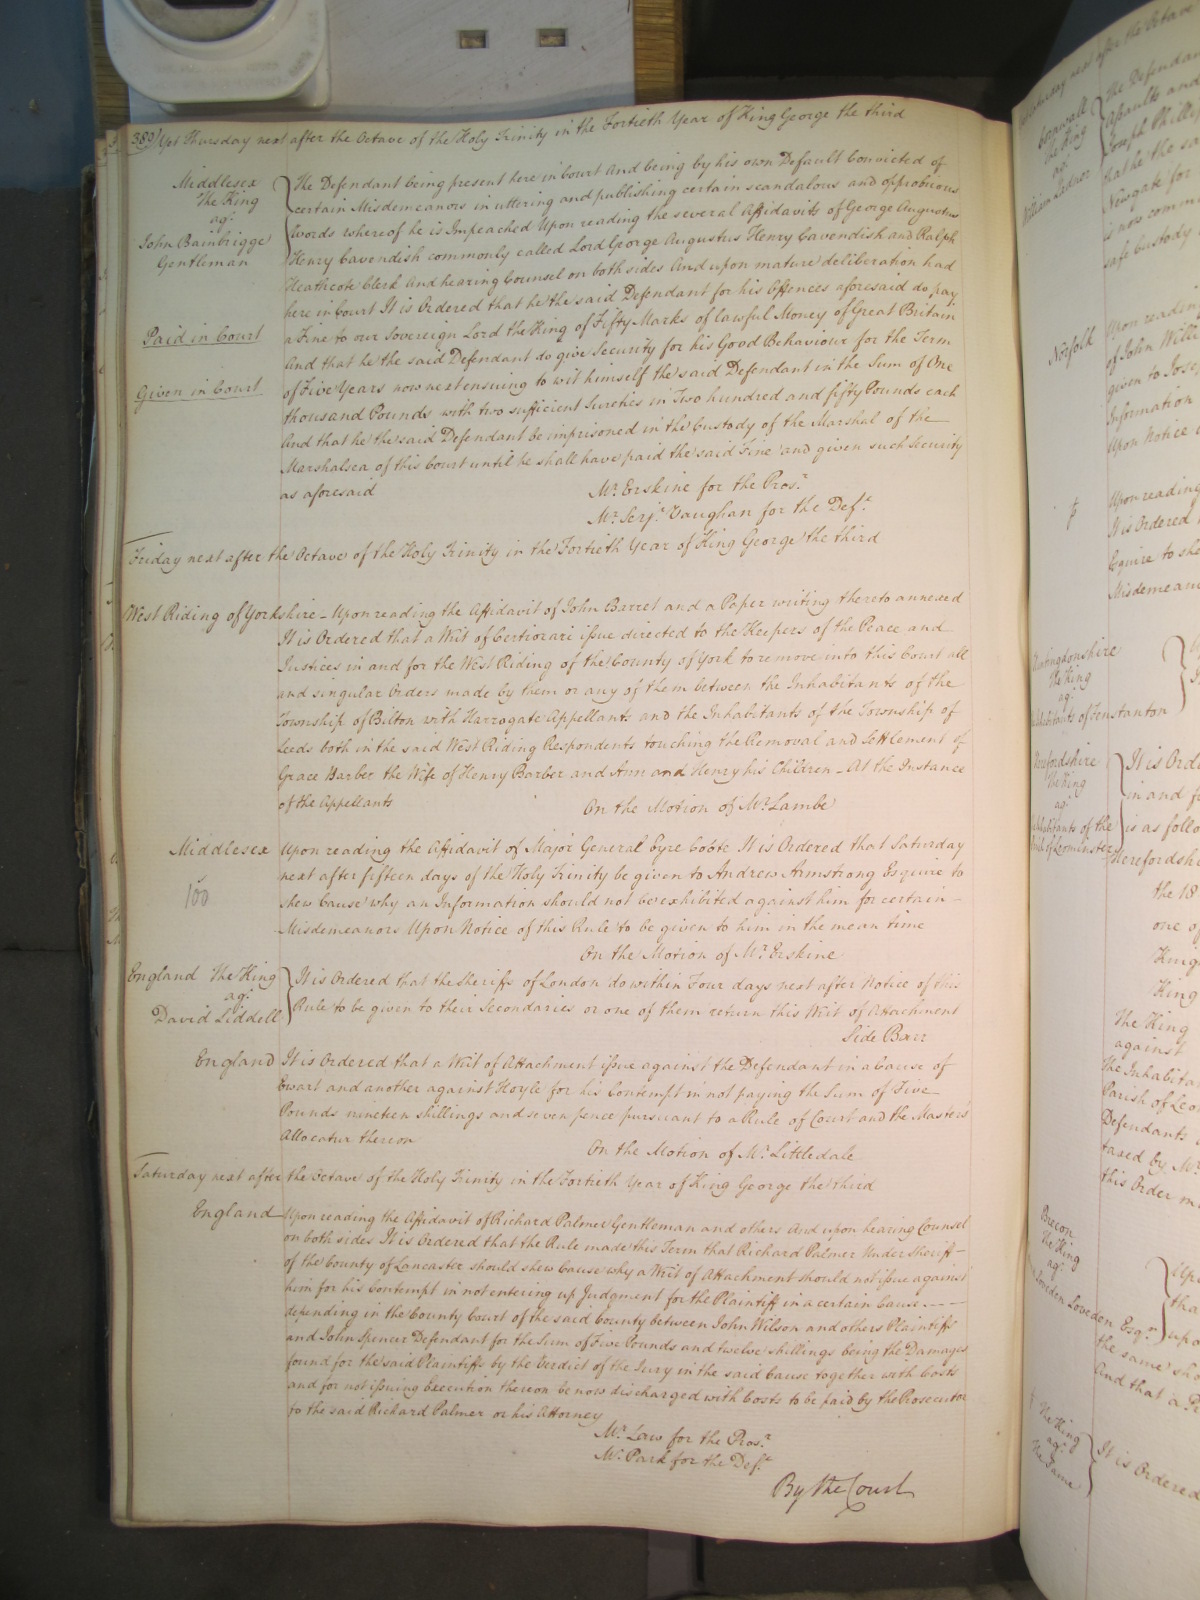 389) Yet Thursday next after the Octave of the Holy Trinity in the Fortieth Year of King George the third
Middlesex
The King
agt.
John Bainbrigge
Gentleman
The Defendant being present here in Court And being by his own Default Convicted of
certain Misdemeanors in uttering and publishing certain scandalous and opprobrious
Words whereof he is Impeached Upon reading the several Affidavits of George Augustus
Henry Cavendish commonly called Lord George Augustus Henry Cavendish and Ralph
Heathcote Clerk And hearing Counsel on both sides And upon mature deliberation had
here in Court It is Ordered that he the said Defendant for his Offences aforesaid do pay
Paid in Court
a Fine to our Sovereign Lord the King of Fifty Marks of lawful Money of Great Britain
And that he the said Defendant do give Security for his Good Behaviour for the Term
Given in Court
of Five Years now next ensuing to wit himself the said Defendant in the Sum of One
thousand Pounds with two sufficient Sureties in Two hundred and fifty Pounds each
And that he the said Defendant be imprisoned in the Custody of the Marshal of the
Marshalsea of this Court until he shall have paid the said Fine and given such Security
as aforesaid
Mr. Erskine for the Pros.r
Mr. Serj.t Vaughan for the Def.t
Friday next after the Octave of the Holy Trinity in the Fortieth Year of King George the third
West Riding of Yorkshire - Upon reading the Affidavit of John Barret and a Paper writing thereto annexed
It is Ordered that a Writ of Certiorari issue directed to the Keepers of the Peace and
Justices in and for the West Riding of the County of York to remove into this Court all
and singular Orders made by them or any of them between the Inhabitants of the
Township of Bilton with Harrogate Appellants and the Inhabitants of the Township of
Leeds both in the said West Riding Respondents touching the Removal and Settlement of
Grace Barber the Wife of Henry Barber and Ann and Henry his Children - At the Instance
of the Appellants
On the Motion of Mr. Lambe
Middlesex
Upon reading the Affidavit of Major General Eyre Coote It is Ordered that Saturday
next after fifteen days of the Holy Trinity be given to Andrew Armstrong Esquire to
100
shew Cause why an Information should not be exhibited against him for certain
Misdemeanors Upon Notice of this Rule to be given to him in the mean time
On the Motion of Mr. Erskine
England The King
agt.
David Liddell
It is Ordered that the Sheriffs of London do within Four days next after Notice of this
Rule to be given to their Secondaries or one of them return this Writ of Attachment
Side Barr
England
It is Ordered that a Writ of Attachment issue against the Defendant in a Cause of
Ewart and another against Hoyle for his Contempt in not paying the Sum of Five
Pounds nineteen shillings and seven pence pursuant to a Rule of Court and the Master's
Allocatur thereon
On the Motion of Mr. Littledale
Saturday next after the Octave of the Holy Trinity in the Fortieth Year of King George the third
England
Upon reading the Affidavit of Richard Palmer Gentleman and others And upon hearing Counsel
on both sides It is Ordered that the Rule made this Term that Richard Palmer Under Sheriff
of the County of Lancaster should shew Cause why a Writ of Attachment should not issue against
him for his Contempt in not entering up Judgment for the Plaintiff in a certain Cause
depending in the County Court of the said County between John Wilson and others Plaintiffs
and John Spencer Defendant for the Sum of Five Pounds and twelve shillings being the Damages
found for the said Plaintiffs by the Verdict of the Jury in the said Cause together with Costs
and for not issuing Execution thereon be now discharged with Costs to be paid by the Prosecutor
to the said Richard Palmer or his Attorney
Mr. Law for the Pros.r
Mr. Park for the Def.t
By the Court
Cornwall
The King
agt.
The Defendan
Assaults and
Joseph Philli
that he the sa
Newgate for
is now comm
safe Custody
Norfolk
Upon readin
of John Willi
given to Jose
Information
Upon Notice
Upon reading
It is Ordered
Esquire to she
Misdemean
Huntingdonshire
The King
agt.
Inhabitants of Fenstanton
Herefordshire
The King
agt.
Inhabitants of the
Parish of Leominster
It is Orde
in and f
is as follo
Herefordshi
the 18
one of
King
King
The King
against
The Inhabita
Parish of Leo
Defendants
taxed by Mr.
this Order m
Brecon
The King
agt.
Loveden Esqr.
Upo
tha
upo
the same sho
And that a
The King
agt.
The Same
It is Ordered